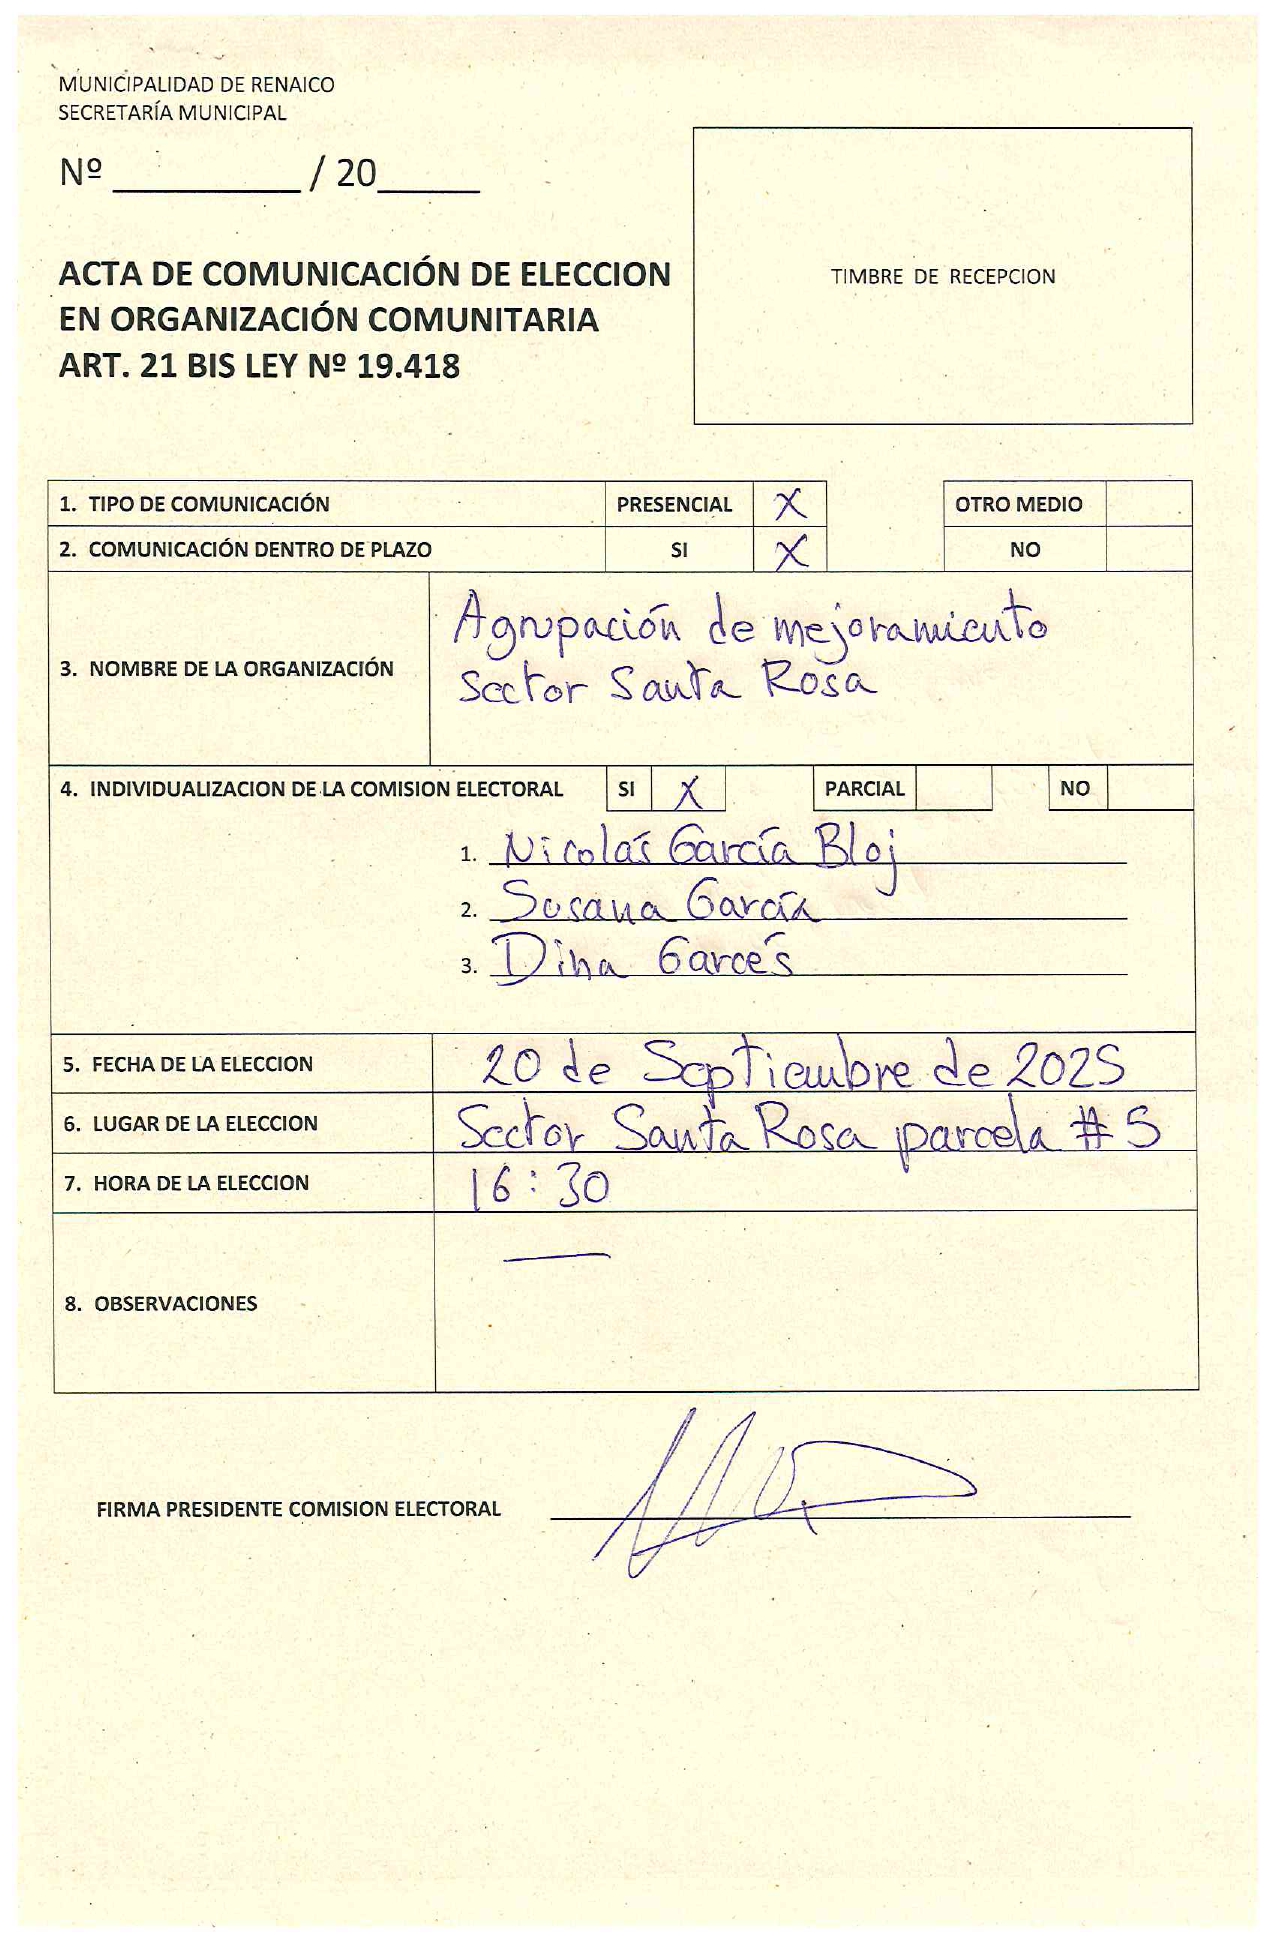 MUNICIPALIDAD DE RENAICO
SECRETARÍA MUNICIPAL
Nº _________ / 20_____
ACTA DE COMUNICACIÓN DE ELECCION
EN ORGANIZACIÓN COMUNITARIA
ART. 21 BIS LEY Nº 19.418
TIMBRE DE RECEPCION
1. TIPO DE COMUNICACIÓN PRESENCIAL X OTRO MEDIO
2. COMUNICACIÓN DENTRO DE PLAZO SI X NO
3. NOMBRE DE LA ORGANIZACIÓN
Agrupación de mejoramiento
Sector Santa Rosa
4. INDIVIDUALIZACION DE LA COMISION ELECTORAL SI X PARCIAL NO
1. Nicolás García Bloj
2. Susana García
3. Dina Garcés
5. FECHA DE LA ELECCION 20 de Septiembre de 2025
6. LUGAR DE LA ELECCION Sector Santa Rosa parcela # 5
7. HORA DE LA ELECCION 16:30
8. OBSERVACIONES —
FIRMA PRESIDENTE COMISION ELECTORAL